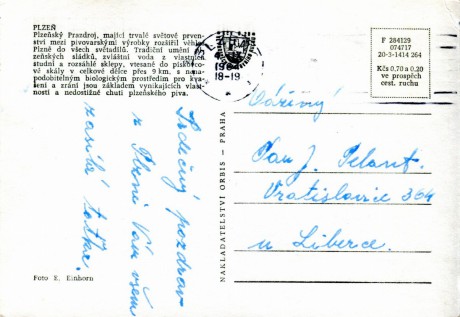 PLZEŇ
Plzeňský Prazdroj, mající trvalé světové prven-
ství mezi pivovarskými výrobky rozšířil věhlas
Plzně do všech světadílů. Tradiční umění
zeňských sládků, zvláštní voda z vlastních
studní a rozsáhlé sklepy, vtesané do pískovco-
vé skály v celkové délce přes 9 km, s nena-
podobitelným biologickým prostředím pro kva-
šení a zrání jsou základem vynikajících vlast-
ností a nedostižné chuti plzeňského piva.
18-19
F 284129
074717
20-3-1414 264
Kčs 0,70 a 0,20
ve prospěch
cest. ruchu
Srdečný pozdrav
z Plzně Vám všem
zasílá
Foto E. Einhorn
NAKLADATELSTVÍ ORBIS - PRAHA
Vážený
Pan J. Pelant.
Vratislavice 364
u Liberce.